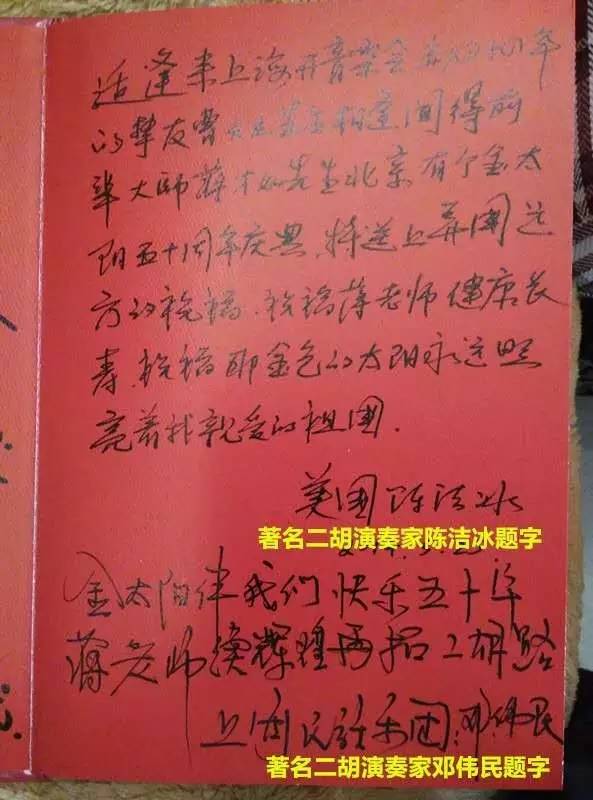 适逢来上海开音乐会年
的挚友曹相逢闻得前
辈大师蒋才如先生北京有个金太
阳五十周年庆典,特送上异国远
方的祝福.祝福蒋老师健康长
寿.祝福那金色的太阳永远照
亮着我亲爱的祖国.
美国 陈洁冰
著名二胡演奏家陈洁冰题字
金太阳伴我们快乐五十年
蒋老师续辉煌再拓二胡路
上海民族乐团 邓伟民
著名二胡演奏家邓伟民题字